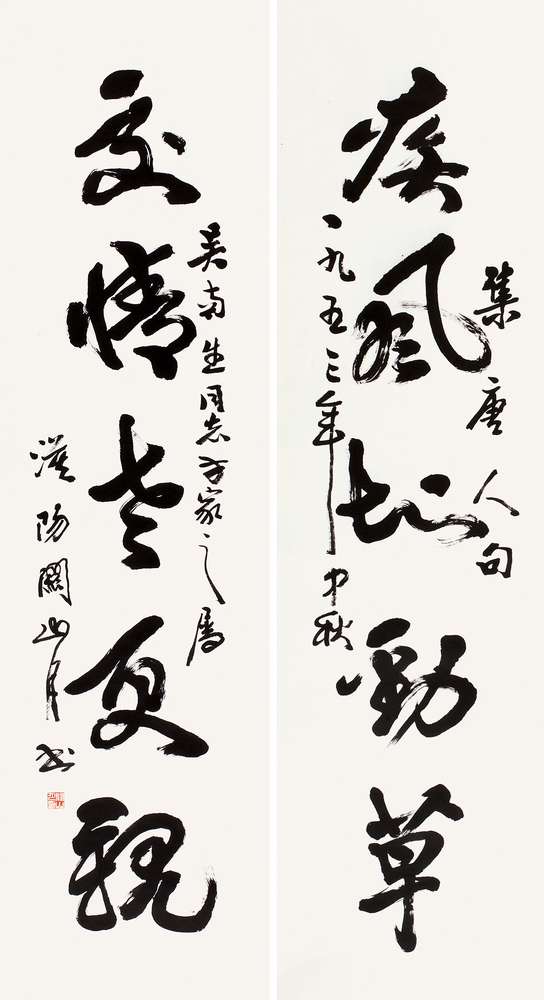 集唐人句
疾風知勁草
一九五三年中秋
吴南生同志方家之属
交情老更親
漠陽關山月书